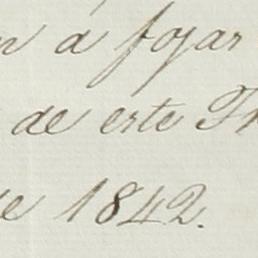 n á fojas
de este Tr
e 1842.